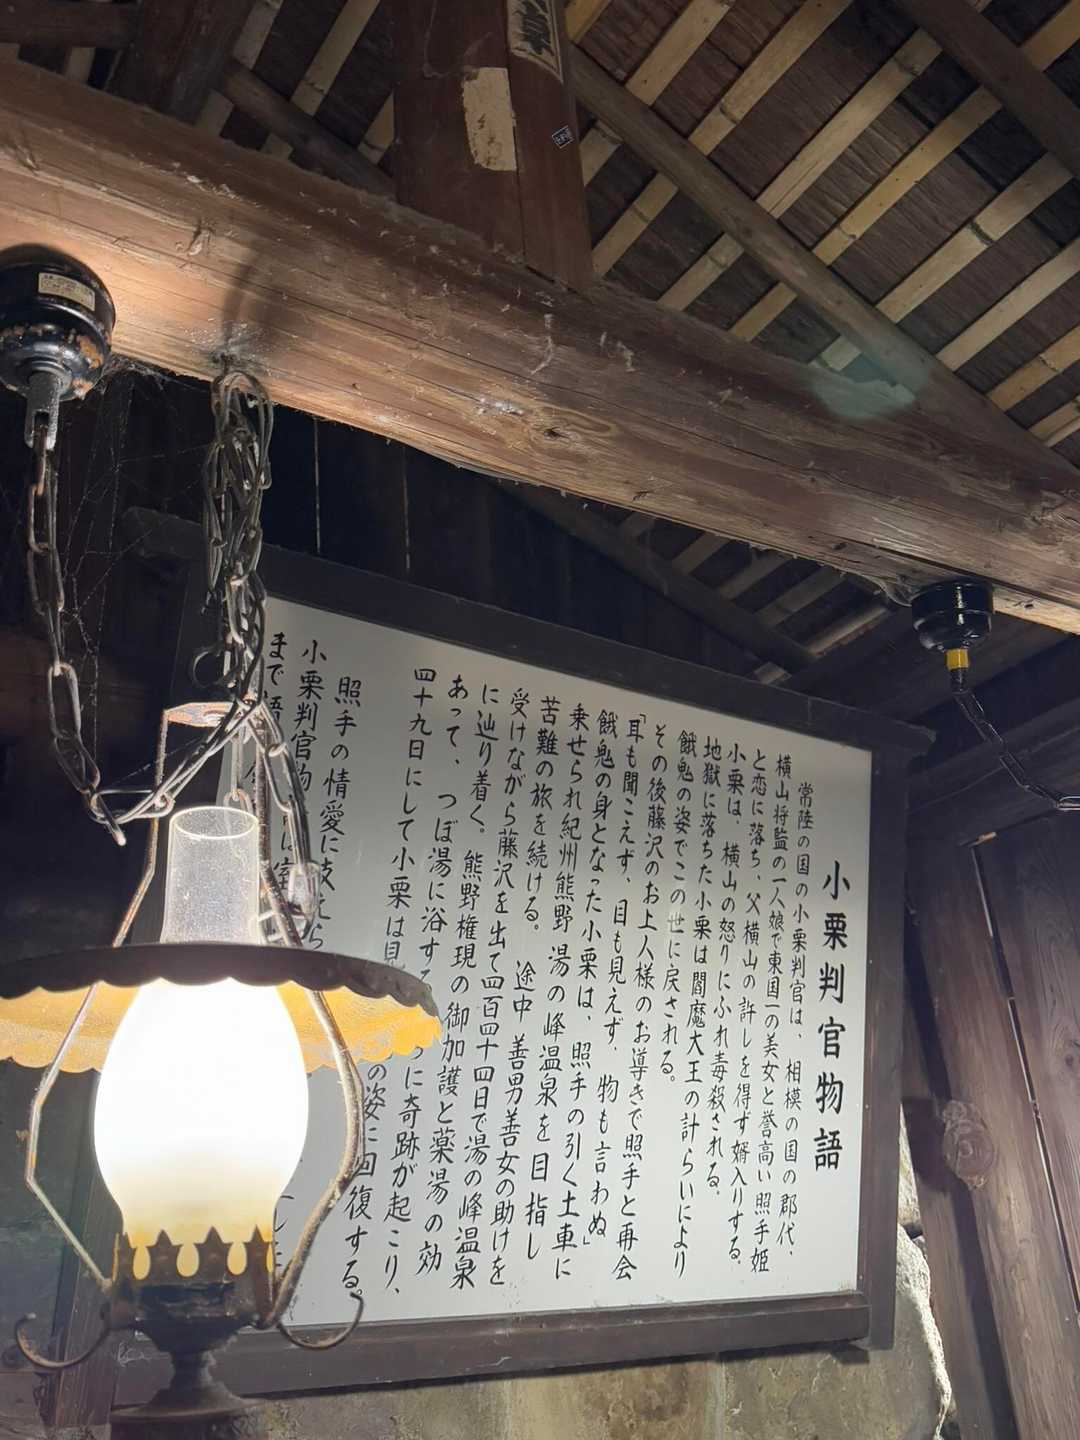 小栗判官物語
常陸の国の小栗判官は、相模の国の郡代、
横山将監の一人娘で東国一の美女と誉高い照手姫
と恋に落ち、父横山の許しを得ず婿入りする。
小栗は、横山の怒りにふれ毒殺される。
地獄に落ちた小栗は閻魔大王の計らいにより
餓鬼の姿でこの世に戻される。
その後藤沢のお上人様のお導きで照手と再会
「耳も聞こえず、目も見えず、物も言わぬ」
餓鬼の身となった小栗は、照手の引く土車に
乗せられ紀州熊野湯の峰温泉を目指し
苦難の旅を続ける。 途中 善男善女の助けを
受けながら藤沢を出て四百四十四日で湯の峰温泉
に辿り着く。 熊野権現の御加護と薬湯の効
あって、つぼ湯に浴する
に奇跡が起こり、
四十九日にして小栗は見
の姿に回復する。
照手の情愛に支えら
小栗判官物
は室
まで語